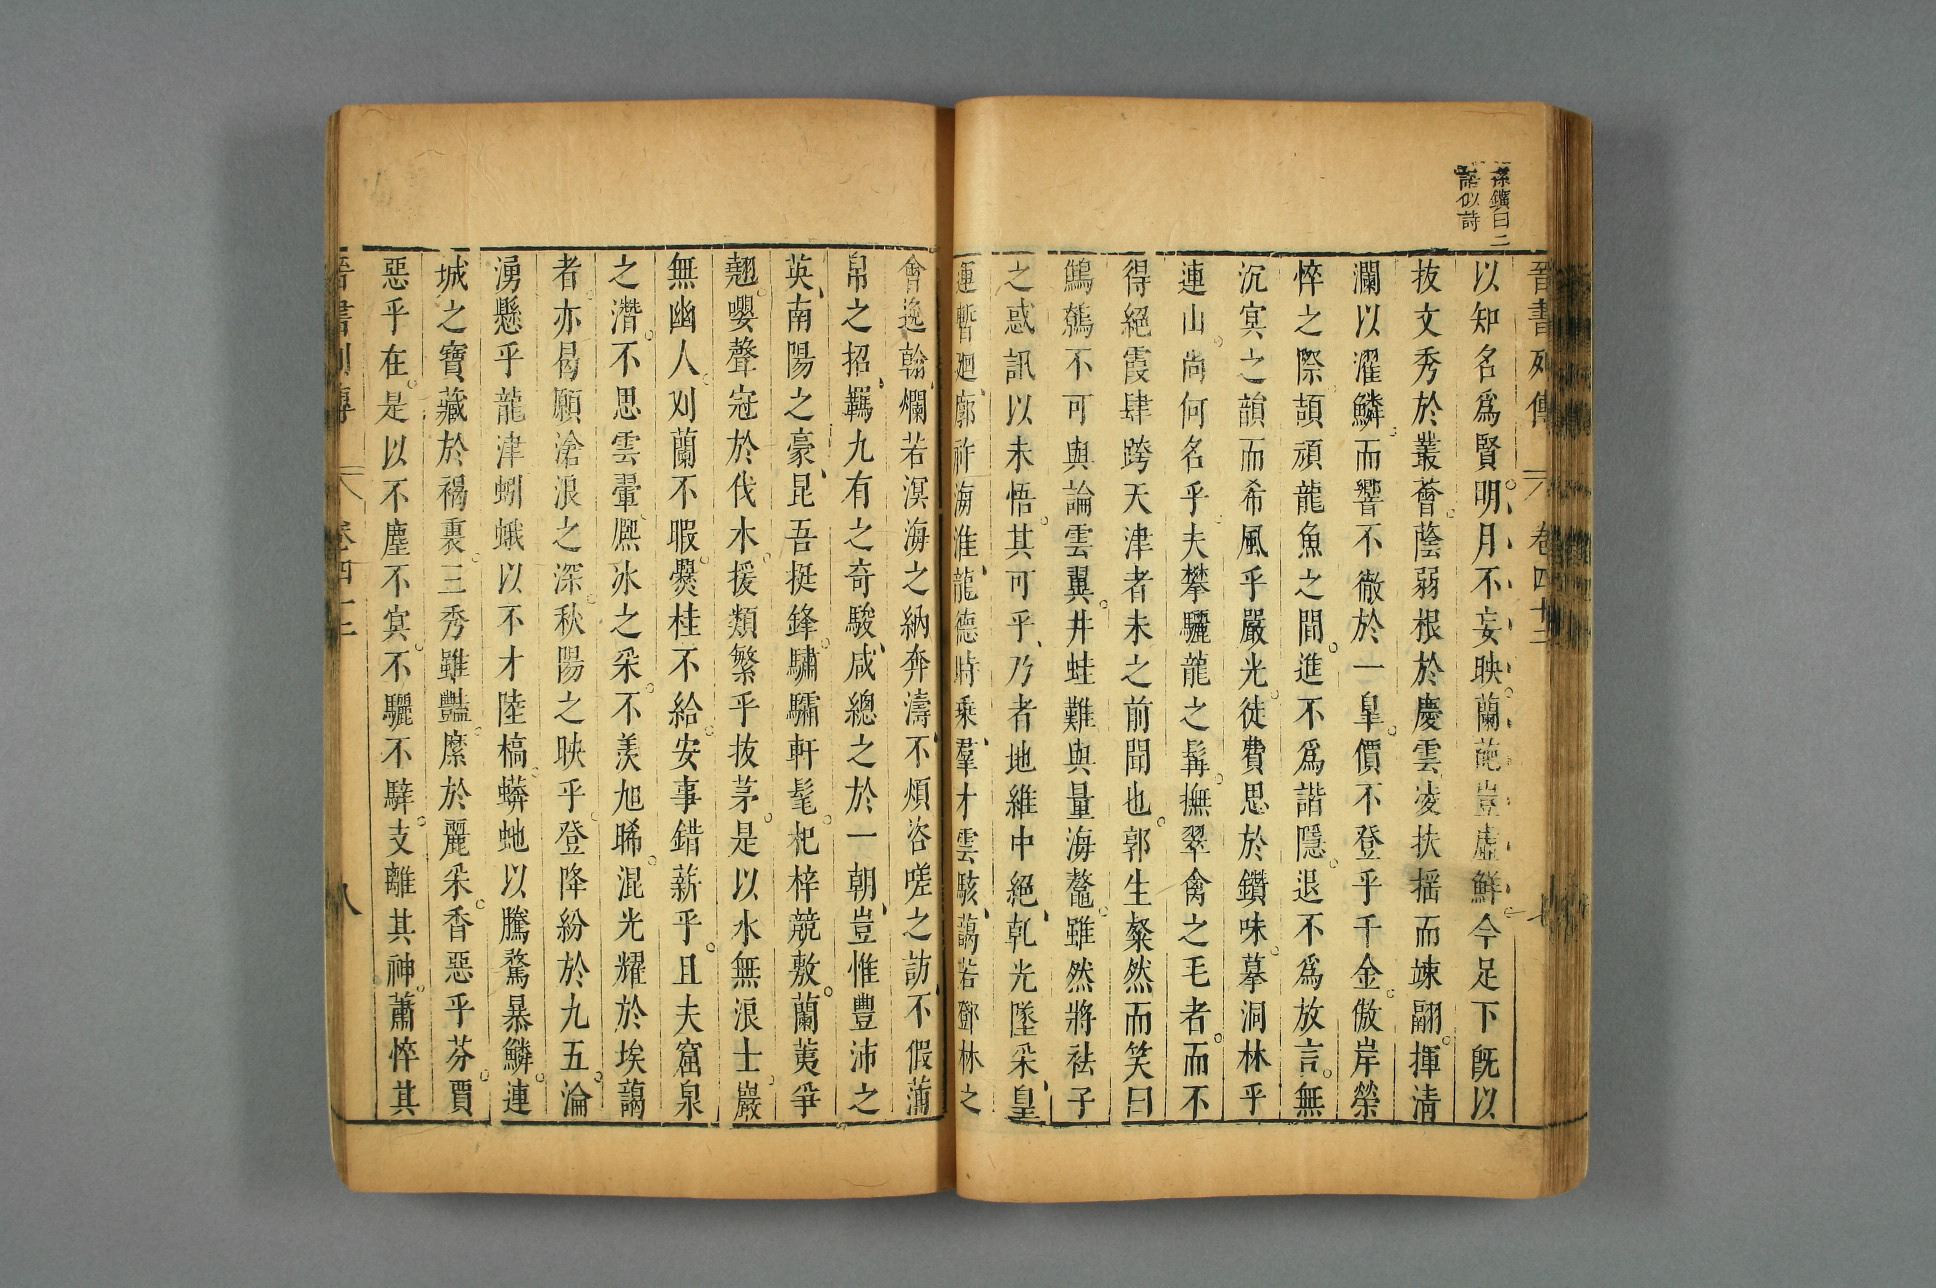 孫鑛曰二
語似詩
晉書列傳 卷四十二 七
以知名爲賢明月不妄映蘭葩豈虛鮮今足下旣以
拔文秀於叢薈蔭弱根於慶雲凌扶搖而竦翮揮清
瀾以濯鱗而響不徹於一皐價不登乎千金傲岸榮
悴之際頡頏龍魚之間進不爲諧隱退不爲放言無
沉㝠之韻而希風乎嚴光徒費思於鑽味摹洞林乎
連山尚何名乎夫攀驪龍之髯撫翠禽之毛者而不
得絕霞肆跨天津者未之前聞也郭生粲然而笑曰
鷦鷯不可與論雲翼井蛙難與量海鼇雖然將袪子
之惑訊以未悟其可乎乃者地維中絕乹光墜采皇
運暫廻廓祚淮海龍德時乘羣才雲駭藹若鄧林之
會逸翰爛若溟海之納奔濤不煩咨嗟之訪不假蒲
帛之招羈九有之奇駿咸總之於一朝豈惟豐沛之
英南陽之豪昆吾挺鋒驌驦軒髦杞梓競敷蘭荑爭
翹嚶聲冠於伐木援類繁乎拔茅是以水無浪士巖
無幽人刈蘭不暇爨桂不給安事錯薪乎且夫窟泉
之潛不思雲翬熈冰之采不羡旭晞混光耀於埃藹
者亦曷願滄浪之深秋陽之映乎登降紛於九五淪
湧懸乎龍津蚓蛾以不才陸槁蟒虵以騰騖暴鱗連
城之寶藏於褐裏三秀雖豔縻於麗采香惡乎芬賈
惡乎在是以不塵不㝠不驪不騂支離其神蕭悴其
晉書列傳 卷四十二 八